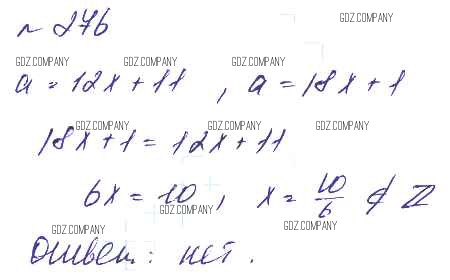 № 276
GDZ.COMPANY
GDZ.COMPANY GDZ.COMPANY GDZ.COMPANY
a = 12x + 11 , a = 18x + 1
GDZ.COMPANY GDZ.COMPANY GDZ.COMPANY
18x + 1 = 12x + 11
6x = 10 , x = 10/6 ∉ Z
GDZ.COMPANY
GDZ.COMPANY GDZ.COMPANY
Ответ: нет.